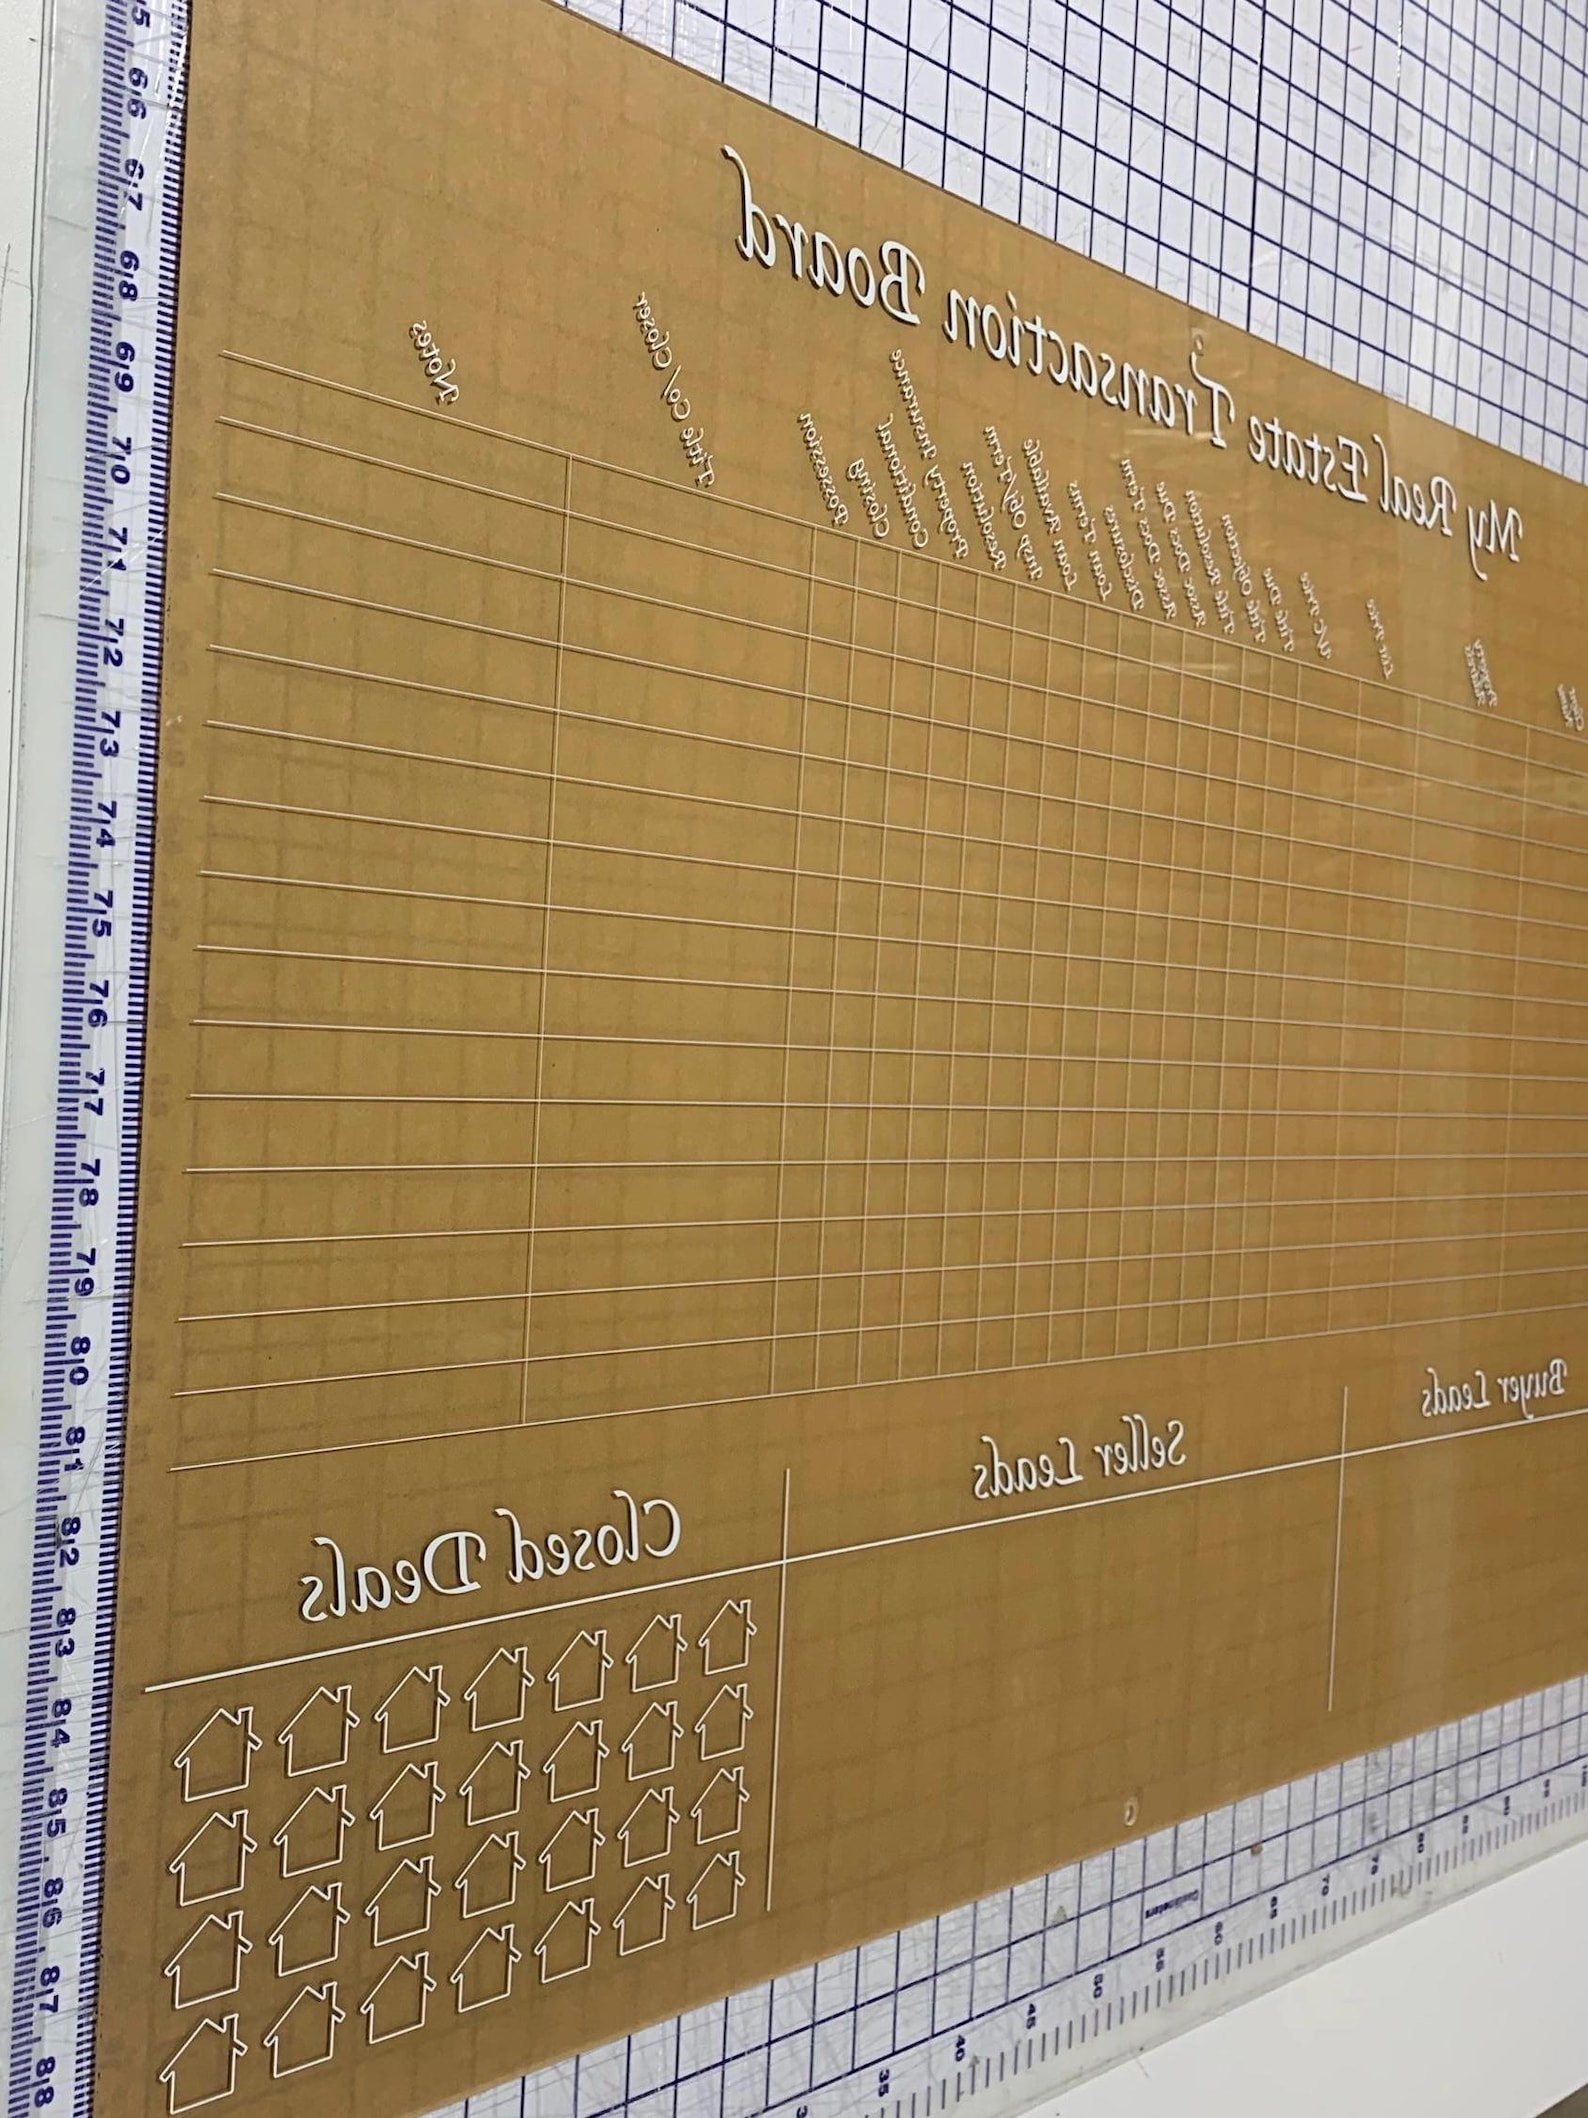 My Real Estate Transaction Board
Title Due
Title Objection
Title Resolution
Assoc Docs Due
Assoc Docs Term
Disclosures
Loan Term
Loan Available
Insp Obj/Term
Resolution
Property Insurance
Conditional
Closing
Possession
Title Co/Closer
Notes
Buyer Leads
Seller Leads
Closed Deals
66
67
68
69
70
71
72
73
74
75
76
77
78
79
80
81
82
83
84
85
86
87
88
35
40
45
50
55
60
65
70
Centimeters